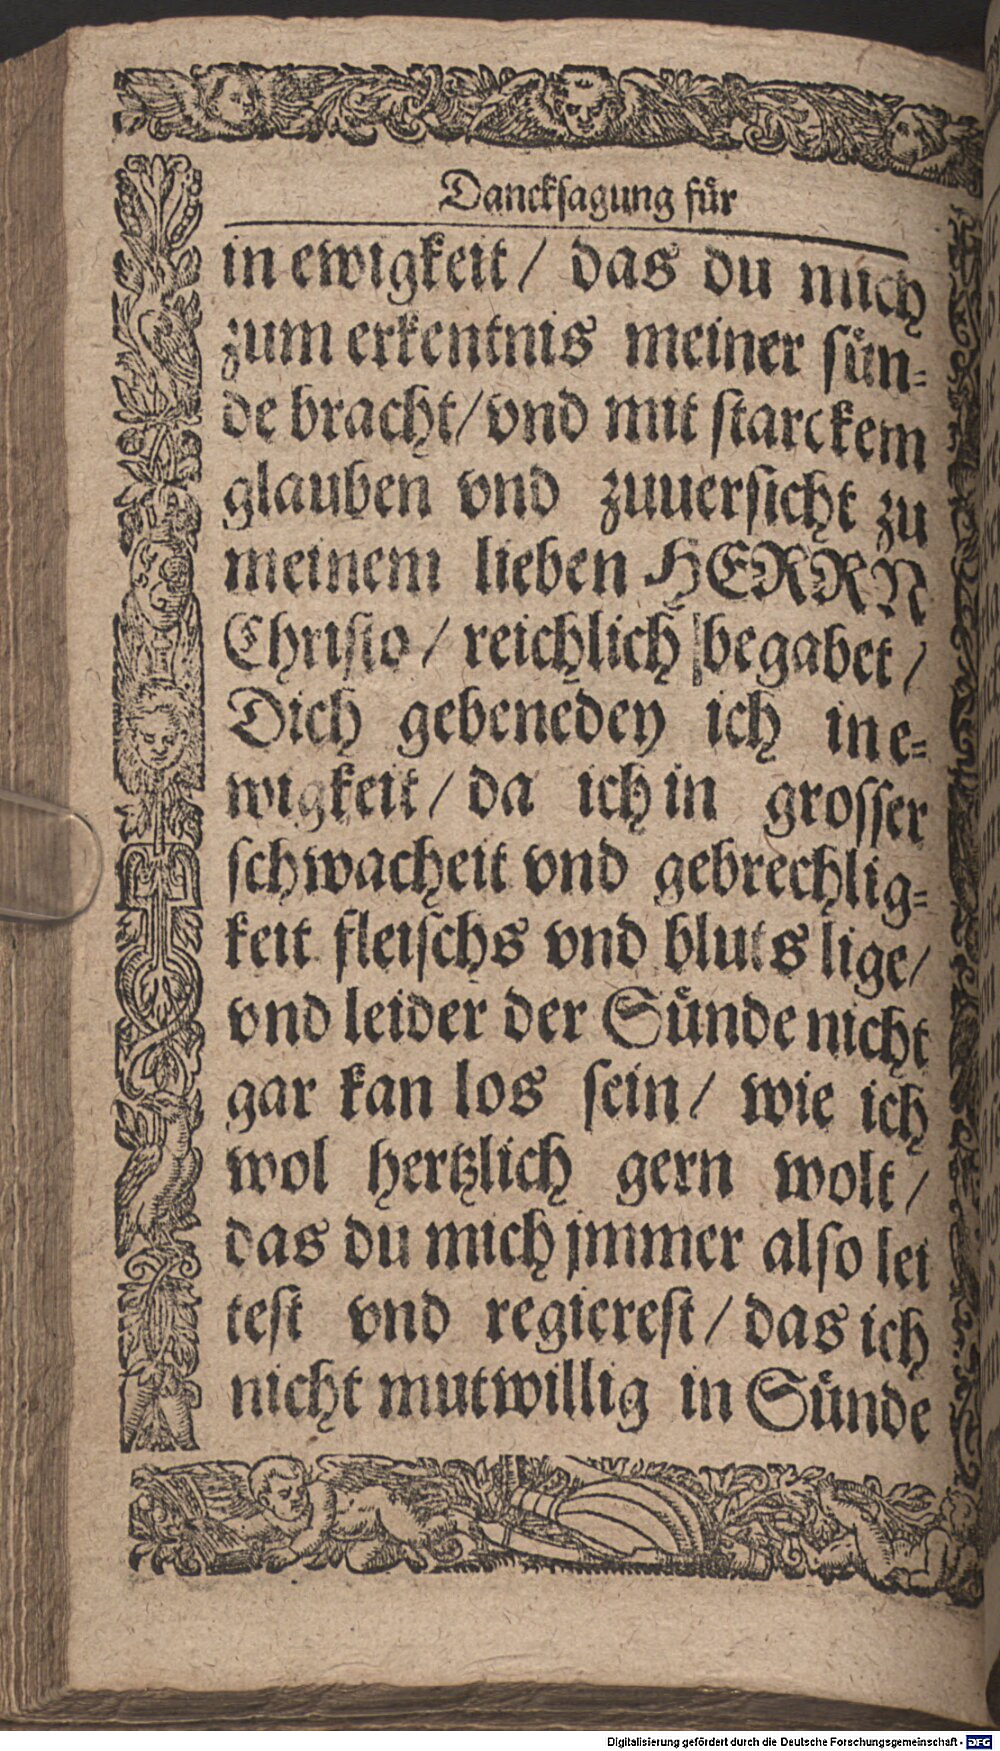 Dancksagung fuͤr
in ewigkeit / das du mich
zum erkentnis meiner suͤn⸗
de bracht / vnd mit starckem
glauben vnd zuuersicht zu
meinem lieben HERRN
Christo / reichlich begabet /
Dich gebenedey ich in e⸗
wigkeit / da ich in grosser
schwacheit vnd gebrechlig⸗
keit fleischs vnd bluts lige /
vnd leider der Suͤnde nicht
gar kan los sein / wie ich
wol hertzlich gern wolt /
das du mich jmmer also lei
test vnd regierest / das ich
nicht mutwillig in Suͤnde
Digitalisierung gefördert durch die Deutsche Forschungsgemeinschaft - DFG